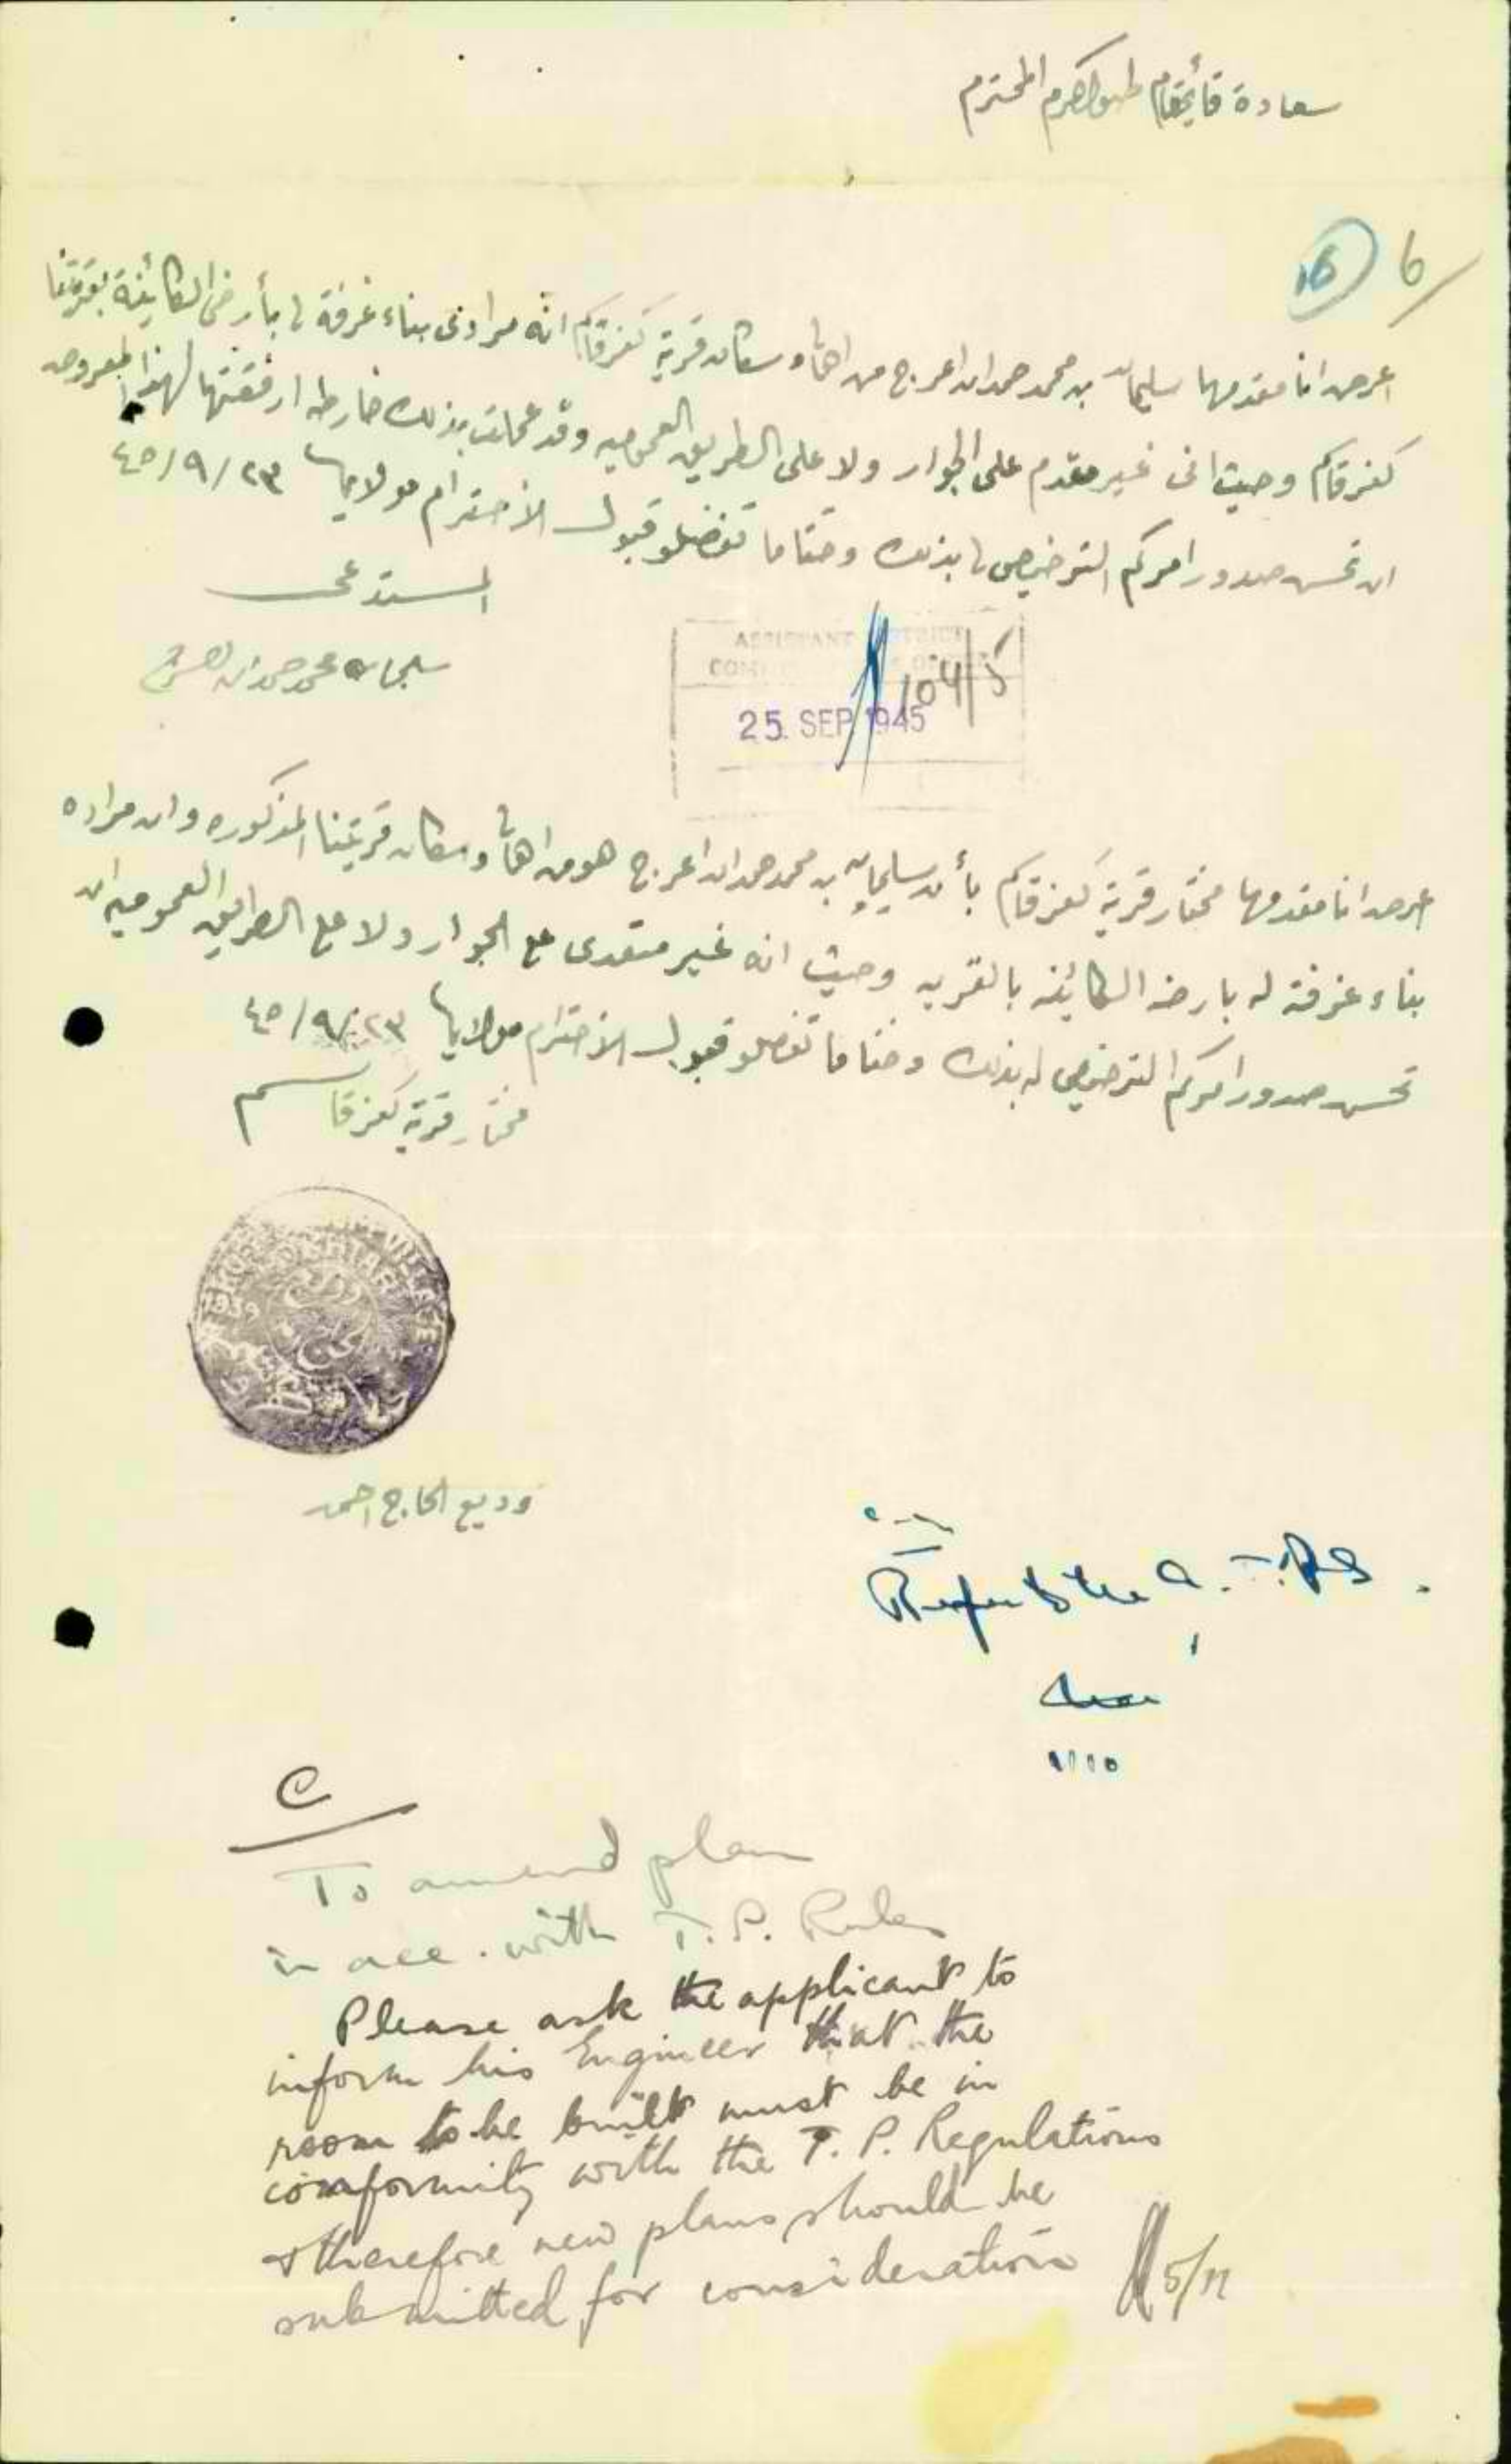 سعادة قائمقام طولكرم المحترم
16 6/
اعرض انا مقدمها سليمان بن محمد حمدان اعرج من اهالي وسكان قرية كفرقاسم انه مرادي بناء غرفة لي بأرضي الكائينة بقريتنا
كفرقاسم وحيث اني غير مقدم على الجوار ولا على الطريق العموميه وقد عملت بذلك خارطه ارفقتها لهذا المعروض
ان تحسن صدور امركم الترخيص لي بذلك وختاما تفضلو قبول الأحترام مولايا ٢٣/٩/٤٥
المستدعي
سليمان محمد حمدان اعرج
ASSISTANT DISTRICT
25. SEP 1945
اعرض انا مقدمها مختار قرية كفرقاسم بأن سليمان بن محمد حمدان اعرج هو من اهالي وسكان قريتنا المذكوره وان مراده
بناء غرفة له بارضه الكائينه بالقريه وحيث انه غير متعدى على الجوار ولا على الطرايق العموميه ان
تحسن صدور امركم الترخيص له بذلك وختاما تفضلو قبول الأحترام مولايا ٢٣/٩/٤٥
مختار قرية كفرقاسم
1939
وديع الحاج احمد
Refer to the
C
To amend plan
in acc. with T.P. Rules
Please ask the applicant to
inform his Engineer that the
room to be built must be in
conformity with the T.P. Regulations
& therefore new plans should be
submitted for consideration
5/11